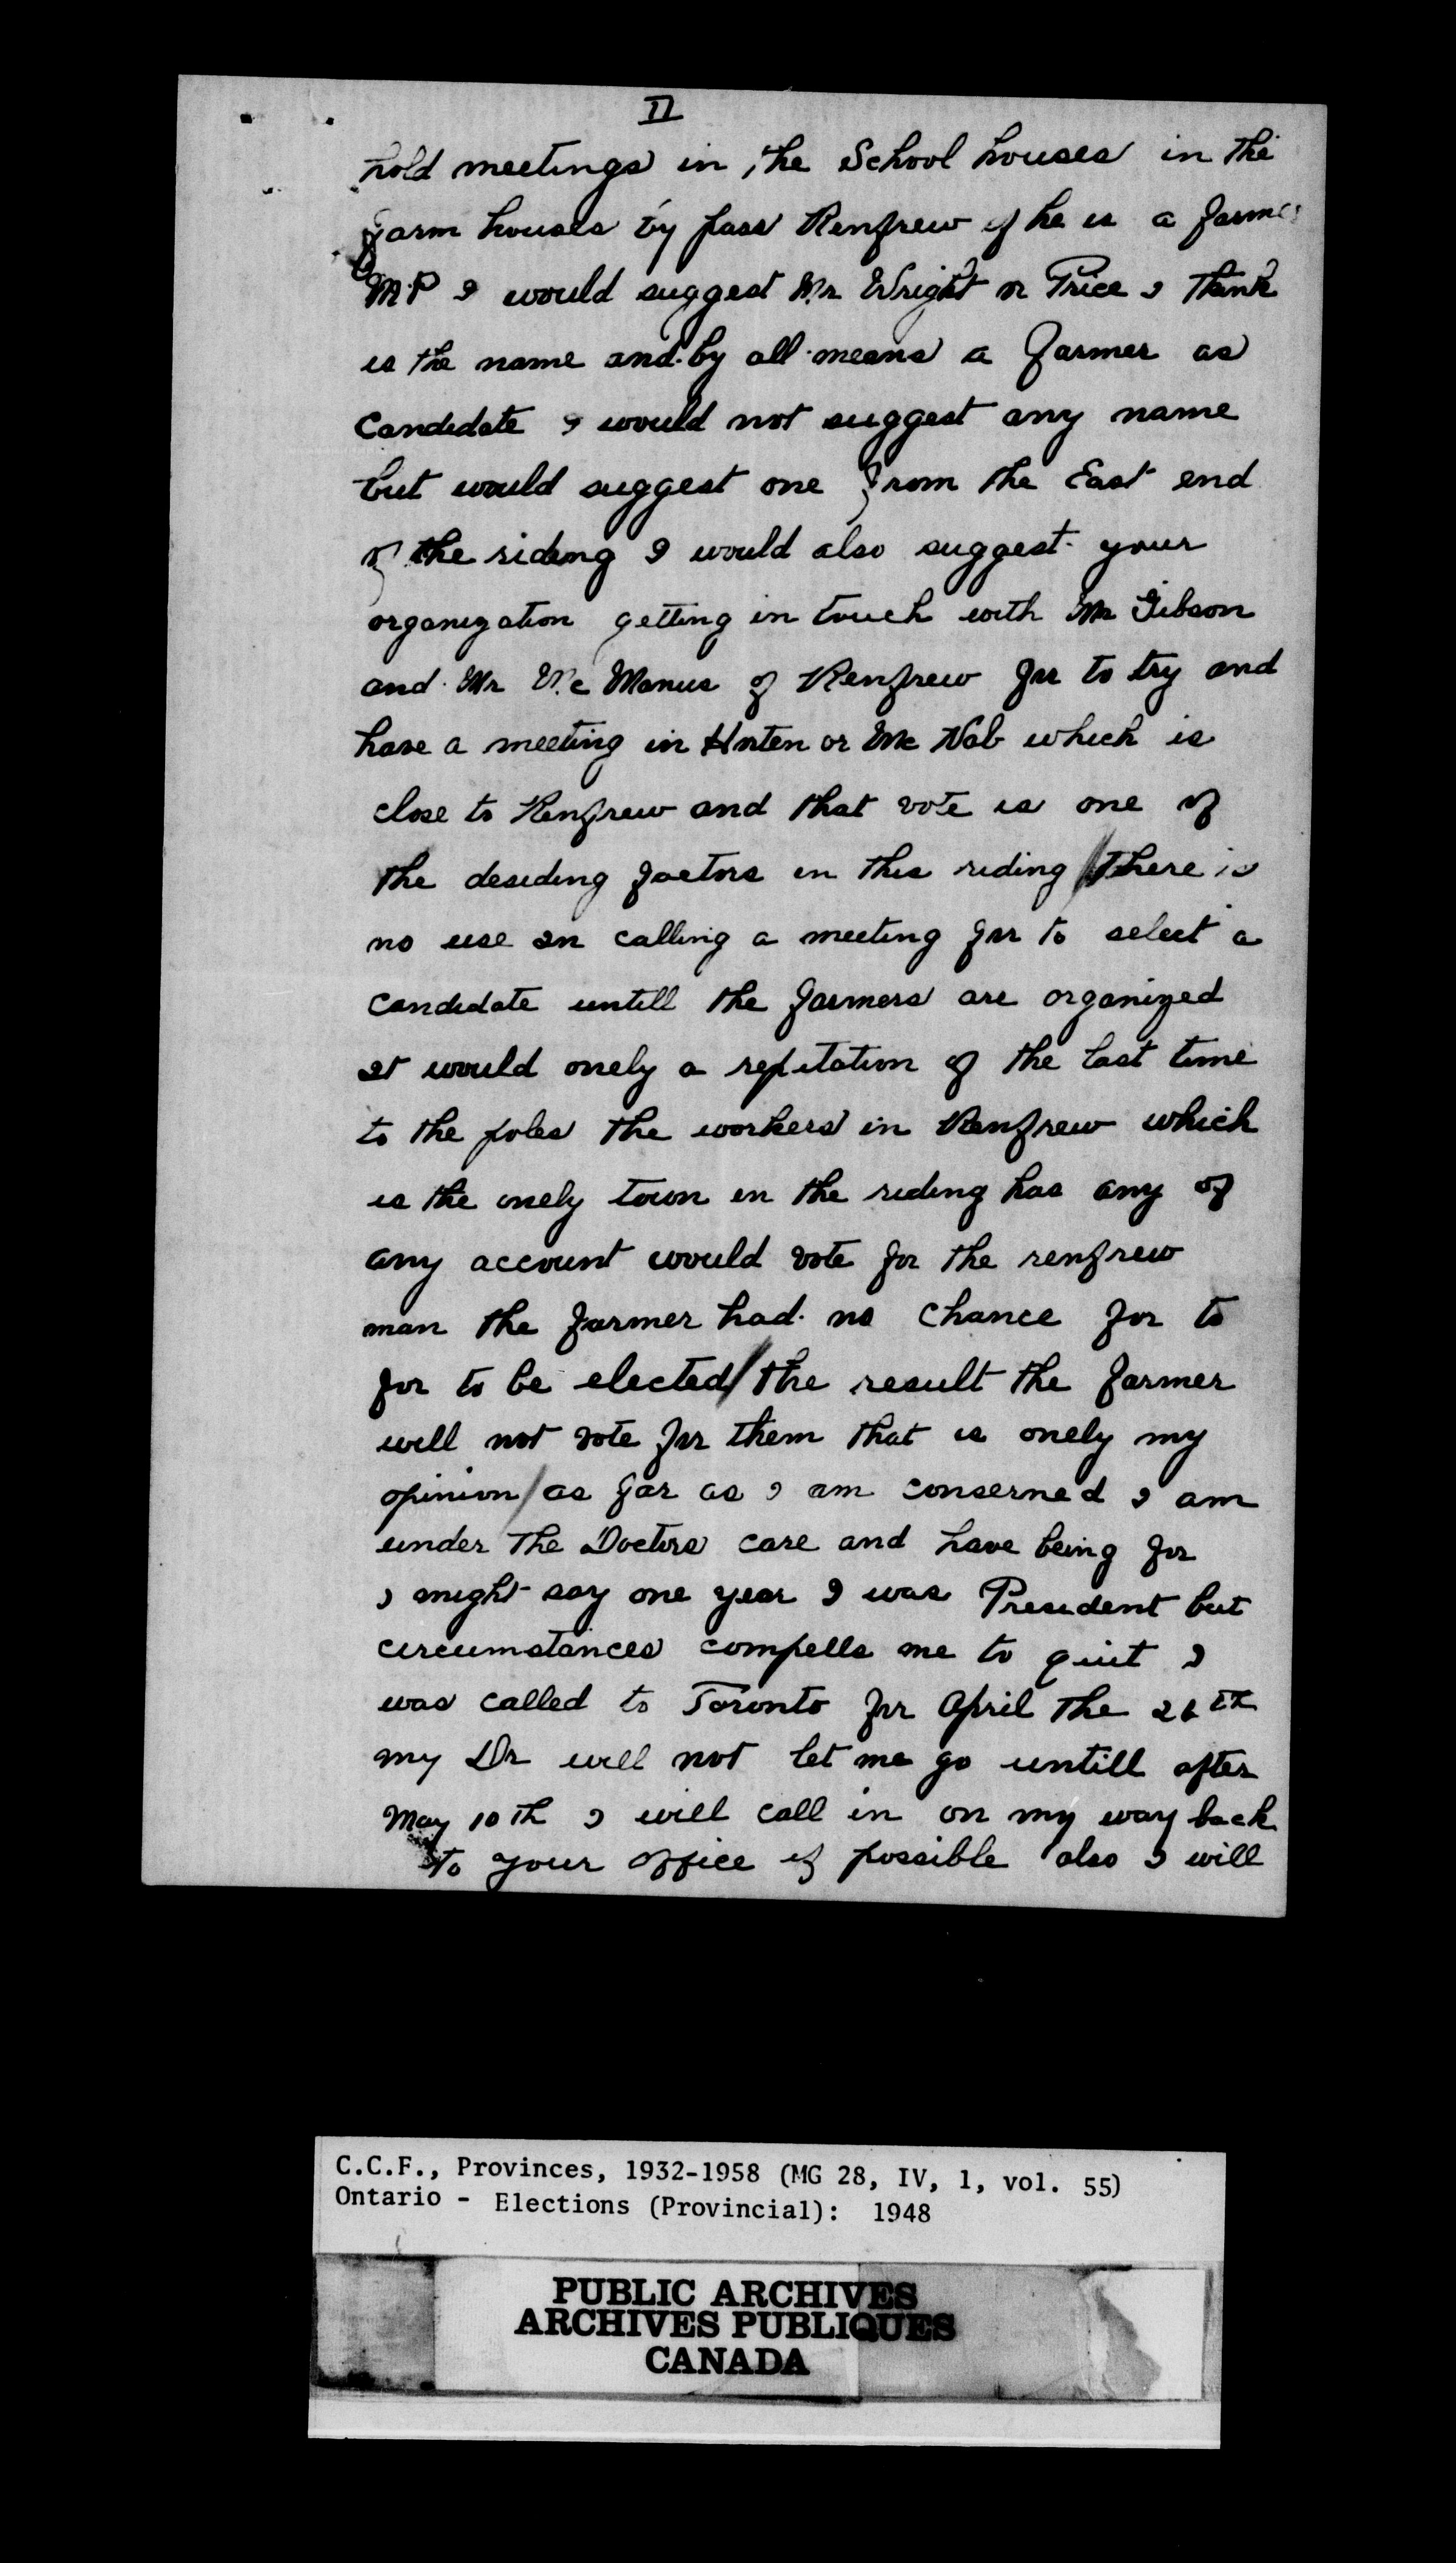 II
hold meetings in the School houses in the
farm houses by pass Renfrew if he is a farmer
M.P I would suggest Mr Wright or Price I think
is the name and by all means a farmer as
candidate I would not suggest any name
but would suggest one from the East end
of the riding I would also suggest your
organization getting in touch with Mr Gibson
and Mr Mc Manus of Renfrew for to try and
have a meeting in Horten or Mc Nab which is
close to Renfrew and that vote is one of
the desiding factors in this riding / there is
no use in calling a meeting for to select a
candidate untill the farmers are organized
it would onely a repitation of the last time
to the poles the workers in Renfrew which
is the onely town in the riding has any of
any account would vote for the renfrew
man the farmer had no chance for to
for to be elected / the result the farmer
will not vote for them that is onely my
opinion / as far as I am conserned I am
under the Doctors care and have being for
I might say one year I was President but
circumstances compells me to quit I
was called to Toronto for April the 26th
my Dr will not let me go untill after
May 10th I will call in on my way back
to your office if possible also I will
C.C.F., Provinces, 1932-1958 (MG 28, IV, 1, vol. 55)
Ontario - Elections (Provincial): 1948
PUBLIC ARCHIVES
ARCHIVES PUBLIQUES
CANADA